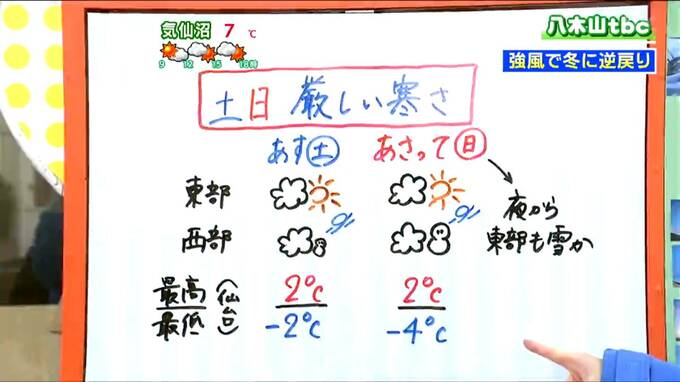 気仙沼 7℃
9 12 15 18時
八木山tbc
強風で冬に逆戻り
土日 厳しい寒さ
あす(土) あさって(日)
東部
夜から
西部
東部も雪か
最高 2℃ 2℃
(仙台)
最低 -2℃ -4℃